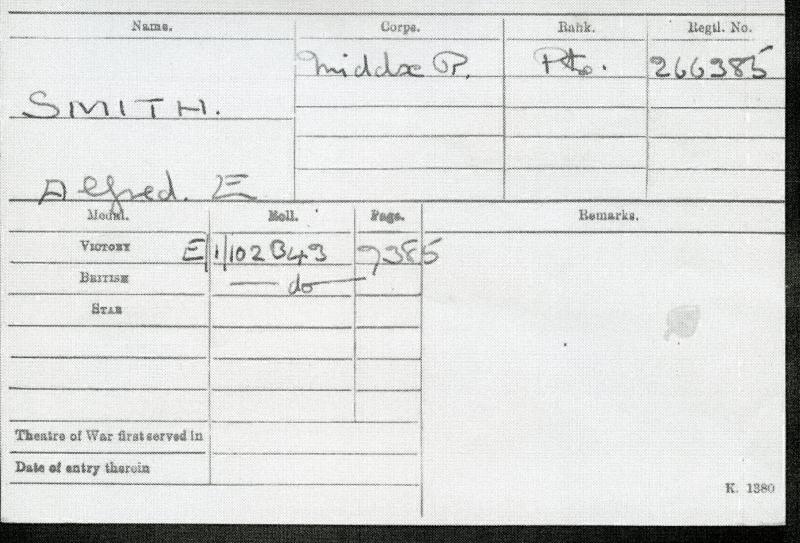 Name. Corps. Rank. Regtl. No.
Middx R. Pte. 266385
SMITH.
Alfred. E
Medal. Roll. Page. Remarks.
VICTORY E/1/102 B43 7385
BRITISH — do —
STAR
Theatre of War first served in
Date of entry therein
K. 1380